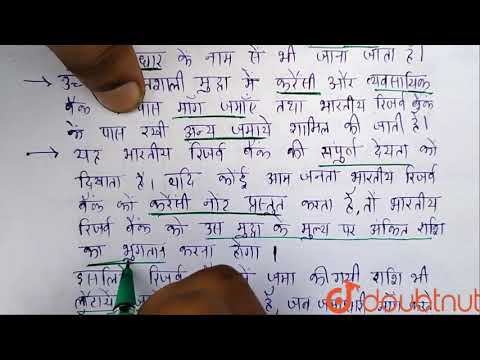 के नाम से भी जाना जाता है।
→ मुद्रा में करेंसी और व्यवसायिक
बैंक पास माँग जमाएँ तथा भारतीय रिजर्व बैंक
के पास रखी अन्य जमायें शामिल की जाती है।
→ यह भारतीय रिजर्व बैंक की संपूर्ण देयता को
दिखाता है। यदि कोई आम जनता भारतीय रिजर्व
बैंक को करेंसी नोट प्रस्तुत करता है, तो भारतीय
रिजर्व बैंक को उस मुद्रा के मूल्य पर अंकित राशि
का भुगतान करना होगा।
रिजर्व में जमा की गयी राशि भी
है, जब
doubtnut